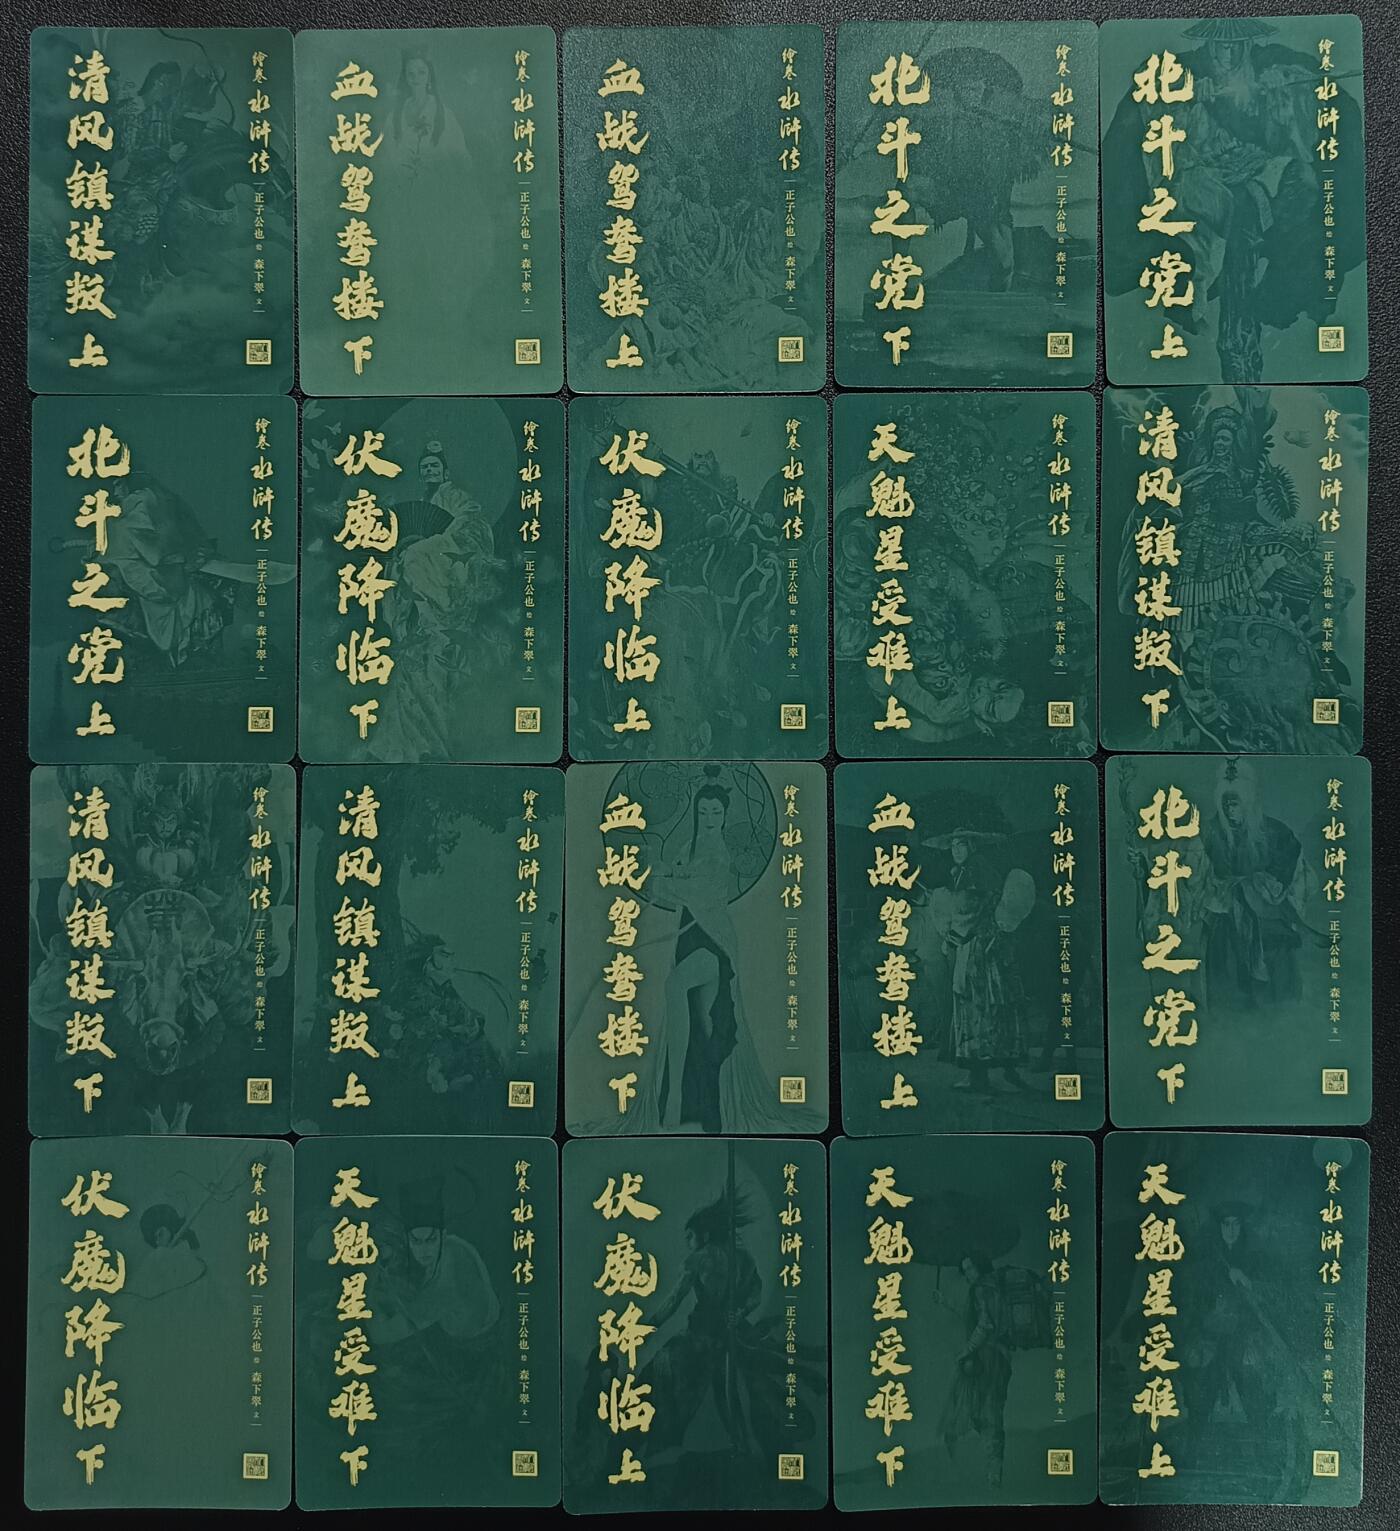 清风镇谋叛 上
繪卷 水浒传 正子公也 绘 森下翠 文
血战鸳鸯楼 下
繪卷 水浒传 正子公也 绘 森下翠 文
血战鸳鸯楼 上
繪卷 水浒传 正子公也 绘 森下翠 文
北斗之党 下
繪卷 水浒传 正子公也 绘 森下翠 文
北斗之党 上
繪卷 水浒传 正子公也 绘 森下翠 文
北斗之党 上
繪卷 水浒传 正子公也 绘 森下翠 文
伏魔降临 下
繪卷 水浒传 正子公也 绘 森下翠 文
伏魔降临 上
繪卷 水浒传 正子公也 绘 森下翠 文
天魁星受难 上
繪卷 水浒传 正子公也 绘 森下翠 文
清风镇谋叛 下
繪卷 水浒传 正子公也 绘 森下翠 文
清风镇谋叛 下
繪卷 水浒传 正子公也 绘 森下翠 文
清风镇谋叛 上
繪卷 水浒传 正子公也 绘 森下翠 文
血战鸳鸯楼 下
繪卷 水浒传 正子公也 绘 森下翠 文
血战鸳鸯楼 上
繪卷 水浒传 正子公也 绘 森下翠 文
北斗之党 下
繪卷 水浒传 正子公也 绘 森下翠 文
伏魔降临 下
繪卷 水浒传 正子公也 绘 森下翠 文
天魁星受难 下
繪卷 水浒传 正子公也 绘 森下翠 文
伏魔降临 上
繪卷 水浒传 正子公也 绘 森下翠 文
天魁星受难 下
繪卷 水浒传 正子公也 绘 森下翠 文
天魁星受难 上
繪卷 水浒传 正子公也 绘 森下翠 文